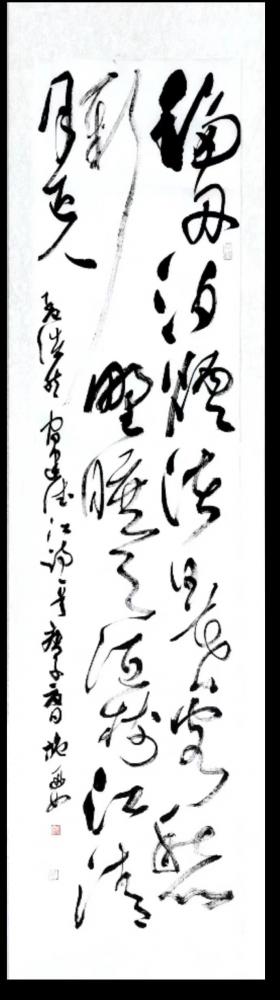 移舟泊煙渚日暮客愁
新野曠天低樹江清
月近人
孟浩然宿建德江詩一首庚子春日